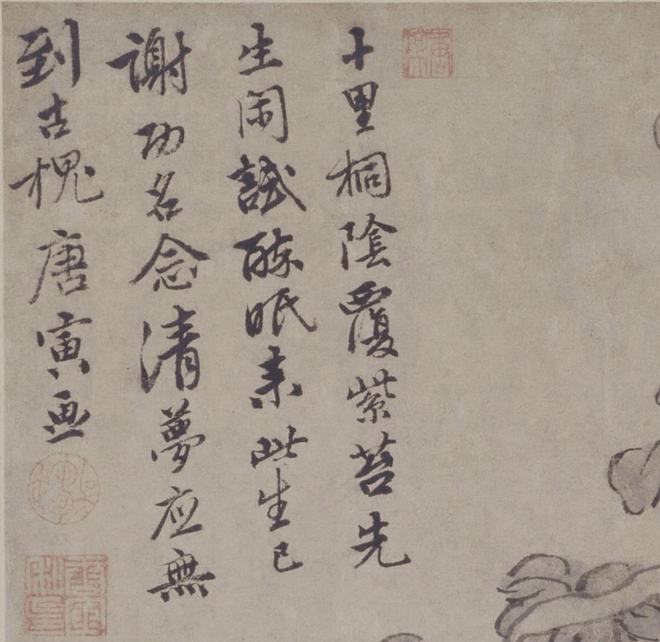 十里桐陰覆紫苔先
生閑試醉眠来此生已
謝功名念清夢应無
到古槐唐寅画